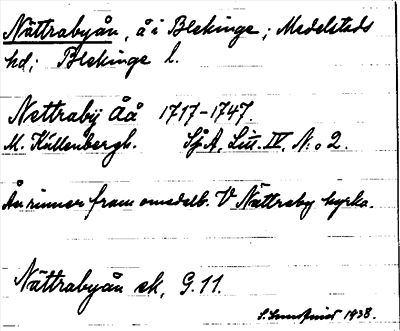 Nättrabyån, å i Blekinge; Medelstads
hd; Blekinge l.
Nettrabÿ Åå 1717-1747.
M. Källenbergh. SjöA, Litt. IV, No 2.
Ån rinner fram omedelb. V Nättraby kyrka.
Nättrabyån ek, G. 11.
1938.